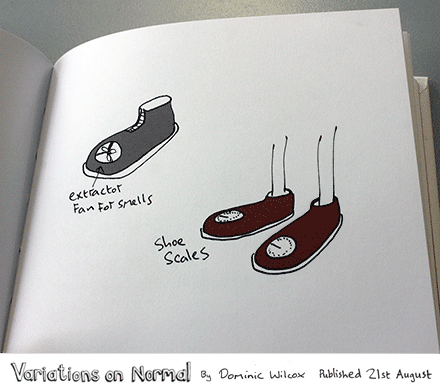 extractor
Fan For smells
Shoe
Scales
Variations on Normal By Dominic Wilcox Published 21st August